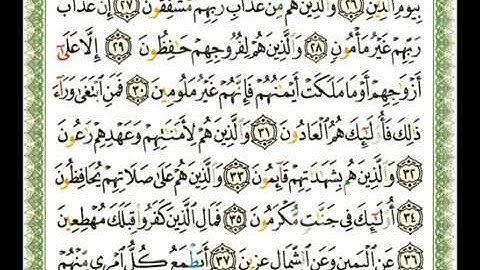 بِيَوْمِ ٱلدِّينِ ٢٦ وَٱلَّذِينَ هُم مِّنْ عَذَابِ رَبِّهِم مُّشْفِقُونَ ٢٧ إِنَّ عَذَابَ
رَبِّهِمْ غَيْرُ مَأْمُونٍ ٢٨ وَٱلَّذِينَ هُمْ لِفُرُوجِهِمْ حَٰفِظُونَ ٢٩ إِلَّا عَلَىٰٓ
أَزْوَٰجِهِمْ أَوْ مَا مَلَكَتْ أَيْمَٰنُهُمْ فَإِنَّهُمْ غَيْرُ مَلُومِينَ ٣٠ فَمَنِ ٱبْتَغَىٰ وَرَآءَ
ذَٰلِكَ فَأُو۟لَٰٓئِكَ هُمُ ٱلْعَادُونَ ٣١ وَٱلَّذِينَ هُمْ لِأَمَٰنَٰتِهِمْ وَعَهْدِهِمْ رَٰعُونَ
٣٢ وَٱلَّذِينَ هُم بِشَهَٰدَٰتِهِمْ قَآئِمُونَ ٣٣ وَٱلَّذِينَ هُمْ عَلَىٰ صَلَاتِهِمْ يُحَافِظُونَ
٣٤ أُو۟لَٰٓئِكَ فِى جَنَّٰتٍ مُّكْرَمُونَ ٣٥ فَمَالِ ٱلَّذِينَ كَفَرُوا۟ قِبَلَكَ مُهْطِعِينَ
٣٦ عَنِ ٱلْيَمِينِ وَعَنِ ٱلشِّمَالِ عِزِينَ ٣٧ أَيَطْمَعُ كُلُّ ٱمْرِئٍ مِّنْهُمْ